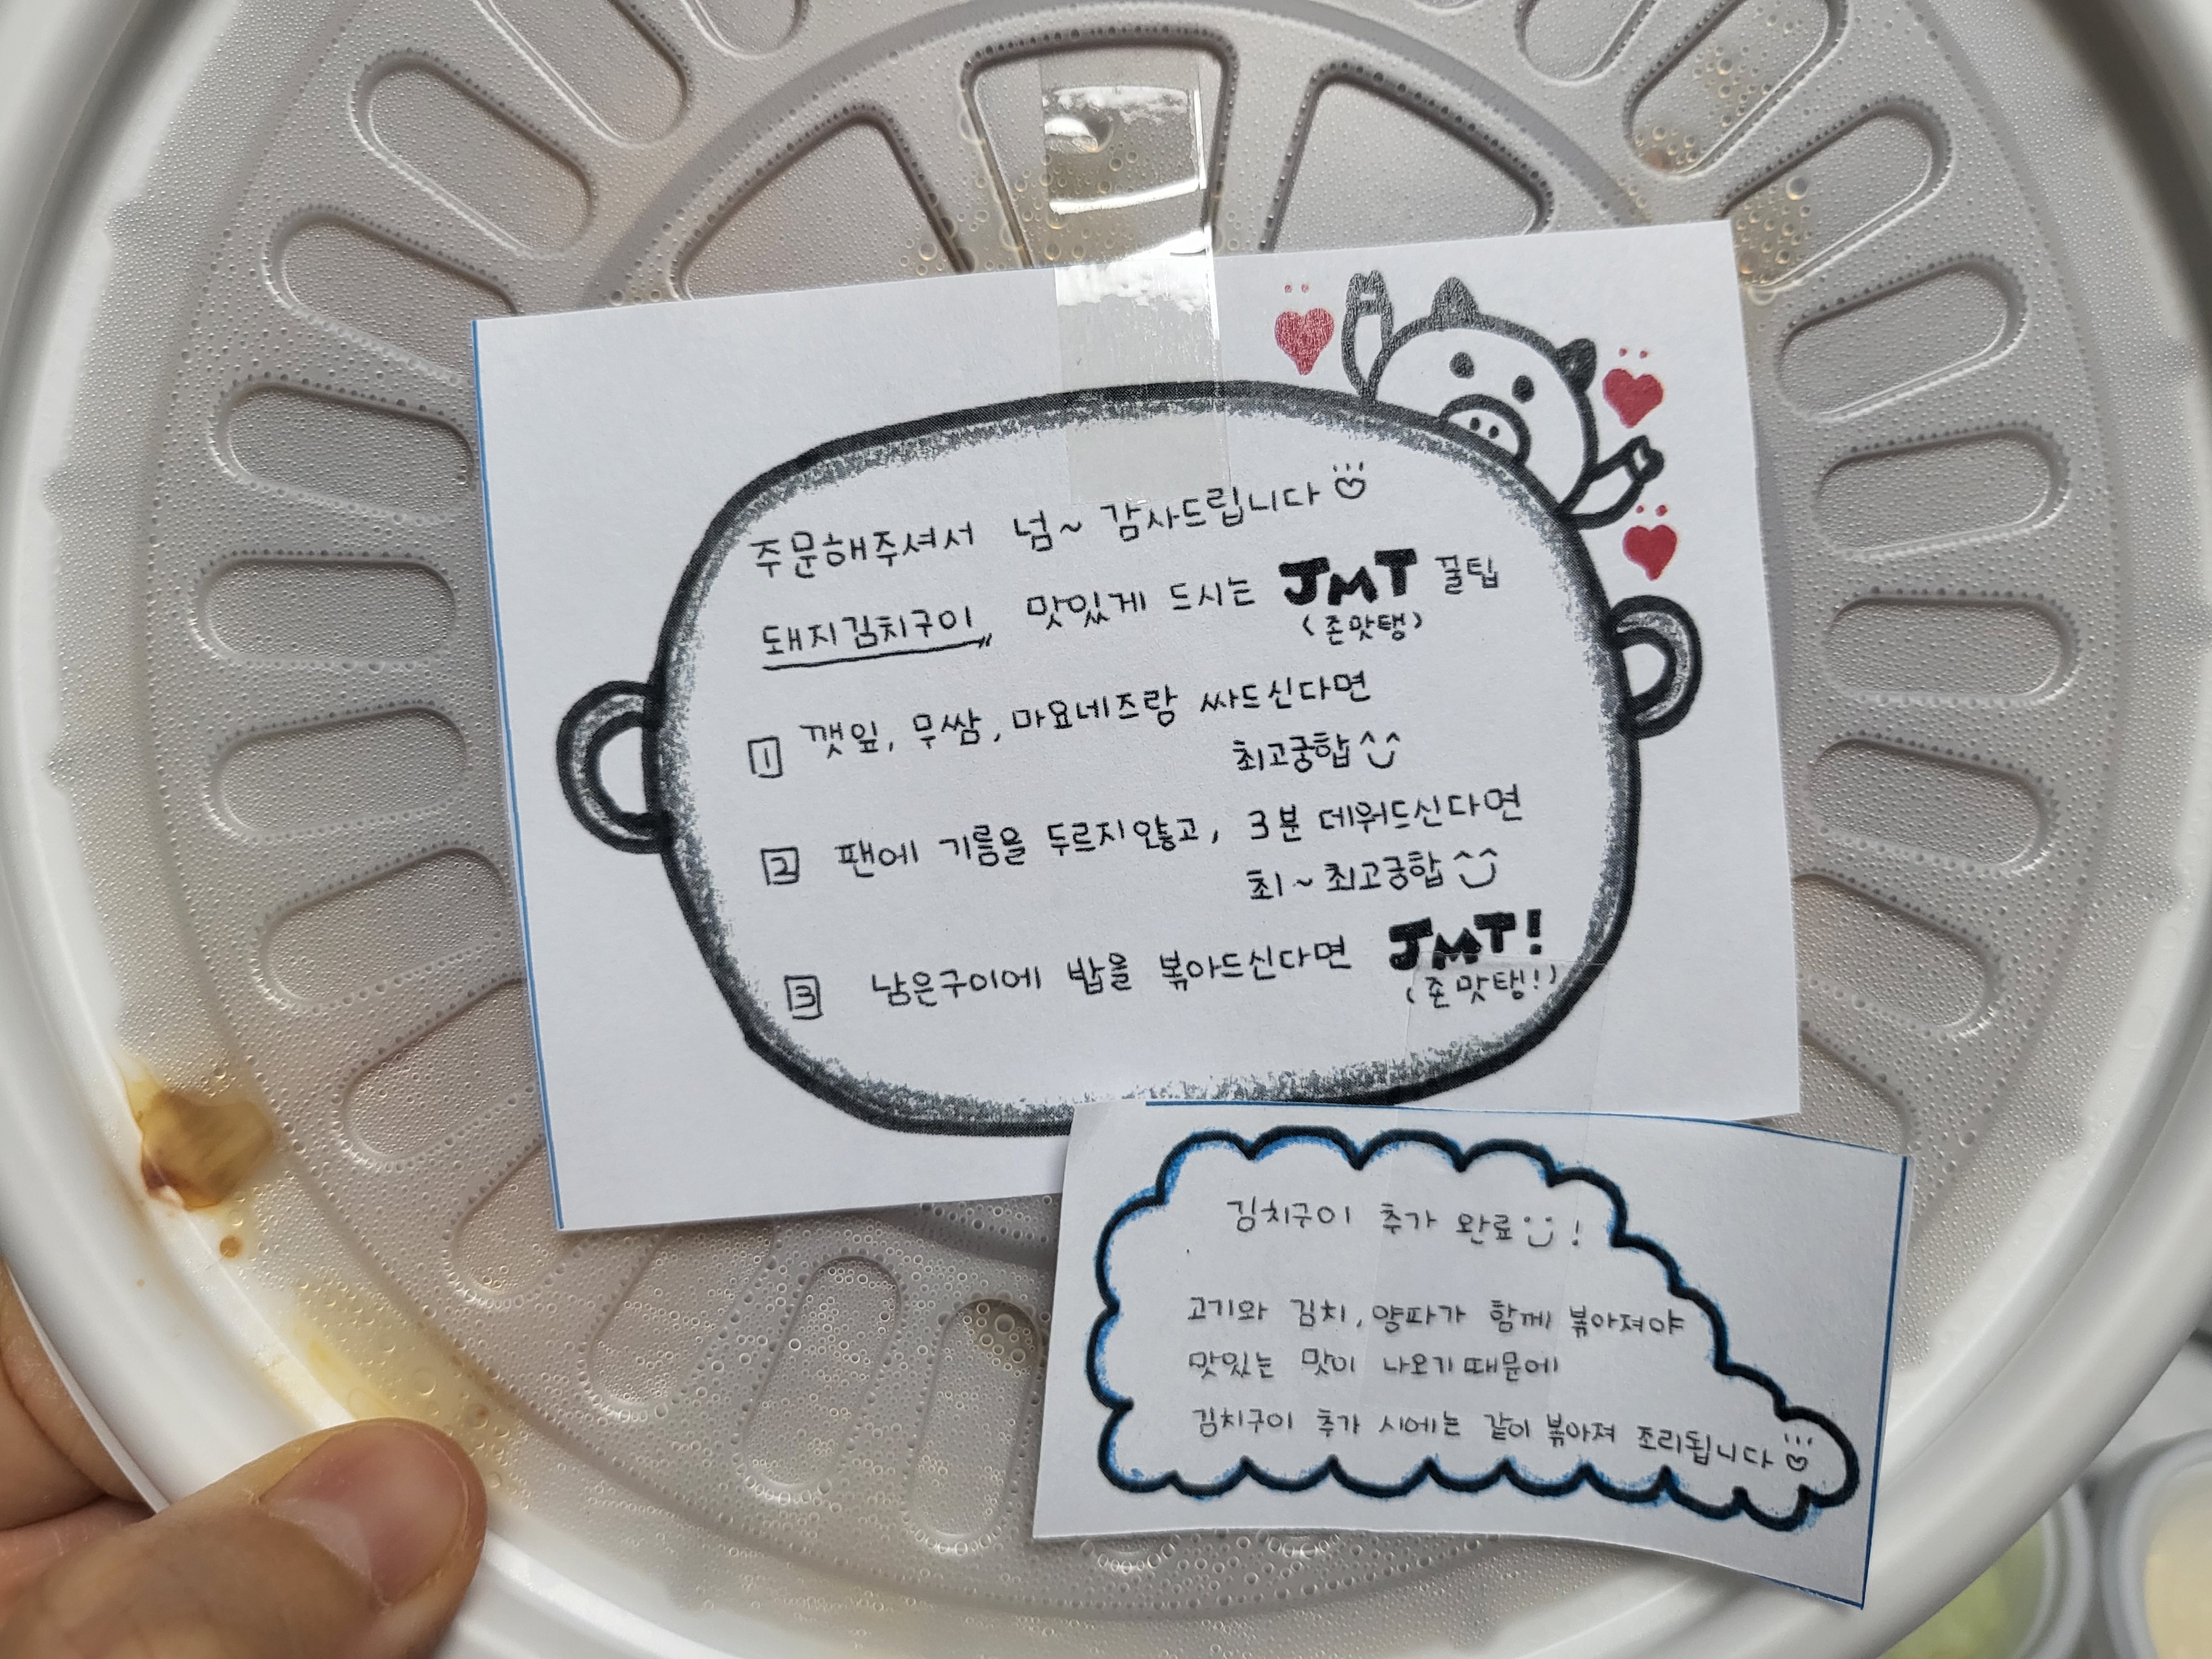 주문해주셔서 넘~ 감사드립니다
돼지김치구이 맛있게 드시는 JMT 꿀팁
(존맛탱)
1 깻잎, 무쌈, 마요네즈랑 싸드신다면
최고궁합^^
2 팬에 기름을 두르지않고, 3분 데워드신다면
최~최고궁합^^
3 남은구이에 밥을 볶아드신다면 JMT!
(존맛탱!)
김치구이 추가 완료!
고기와 김치, 양파가 함께 볶아져야
맛있는 맛이 나오기때문에
김치구이 추가 시에는 같이 볶아져 조리됩니다